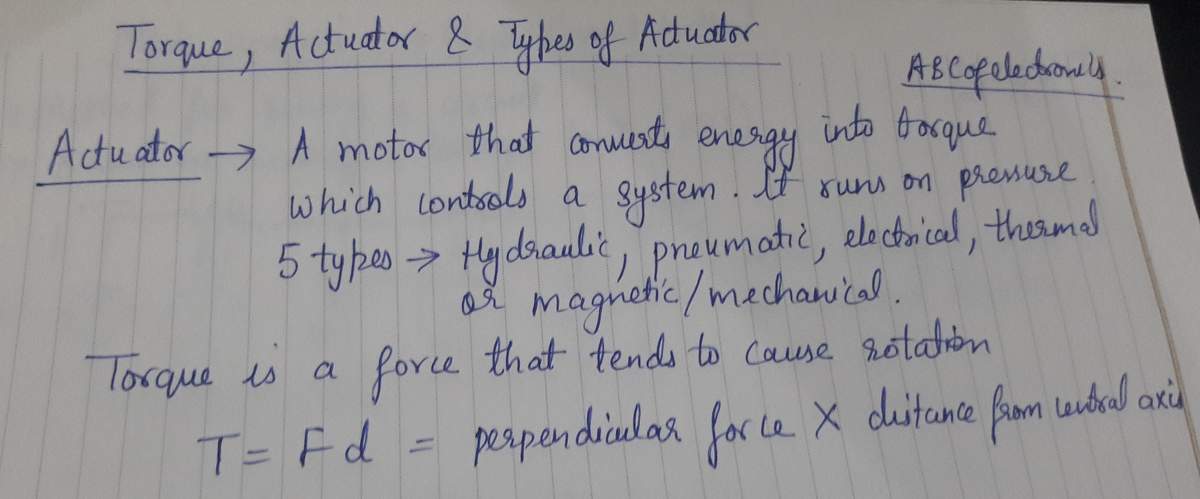 Torque, Actuator & Types of Actuator
ABCofelectronics.
Actuator → A motor that converts energy into torque
which controls a system. It runs on pressure.
5 types → Hydraulic, pneumatic, electrical, thermal
or magnetic/mechanical.
Torque is a force that tends to cause rotation
T = Fd = perpendicular force X distance from central axis